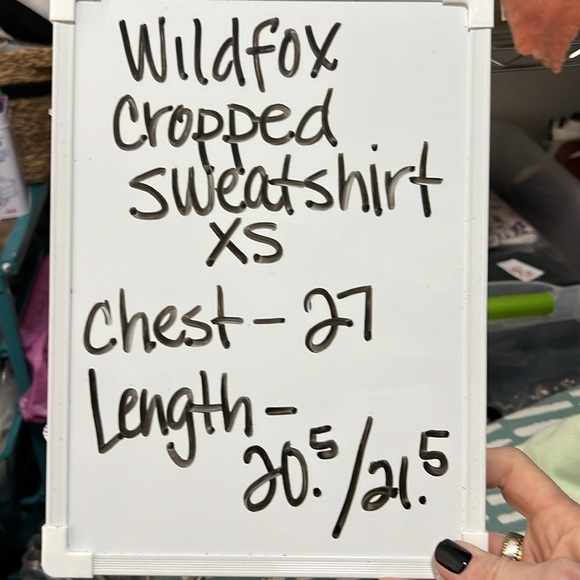 Wildfox
cropped
sweatshirt
XS
chest - 27
Length -
20.5/21.5